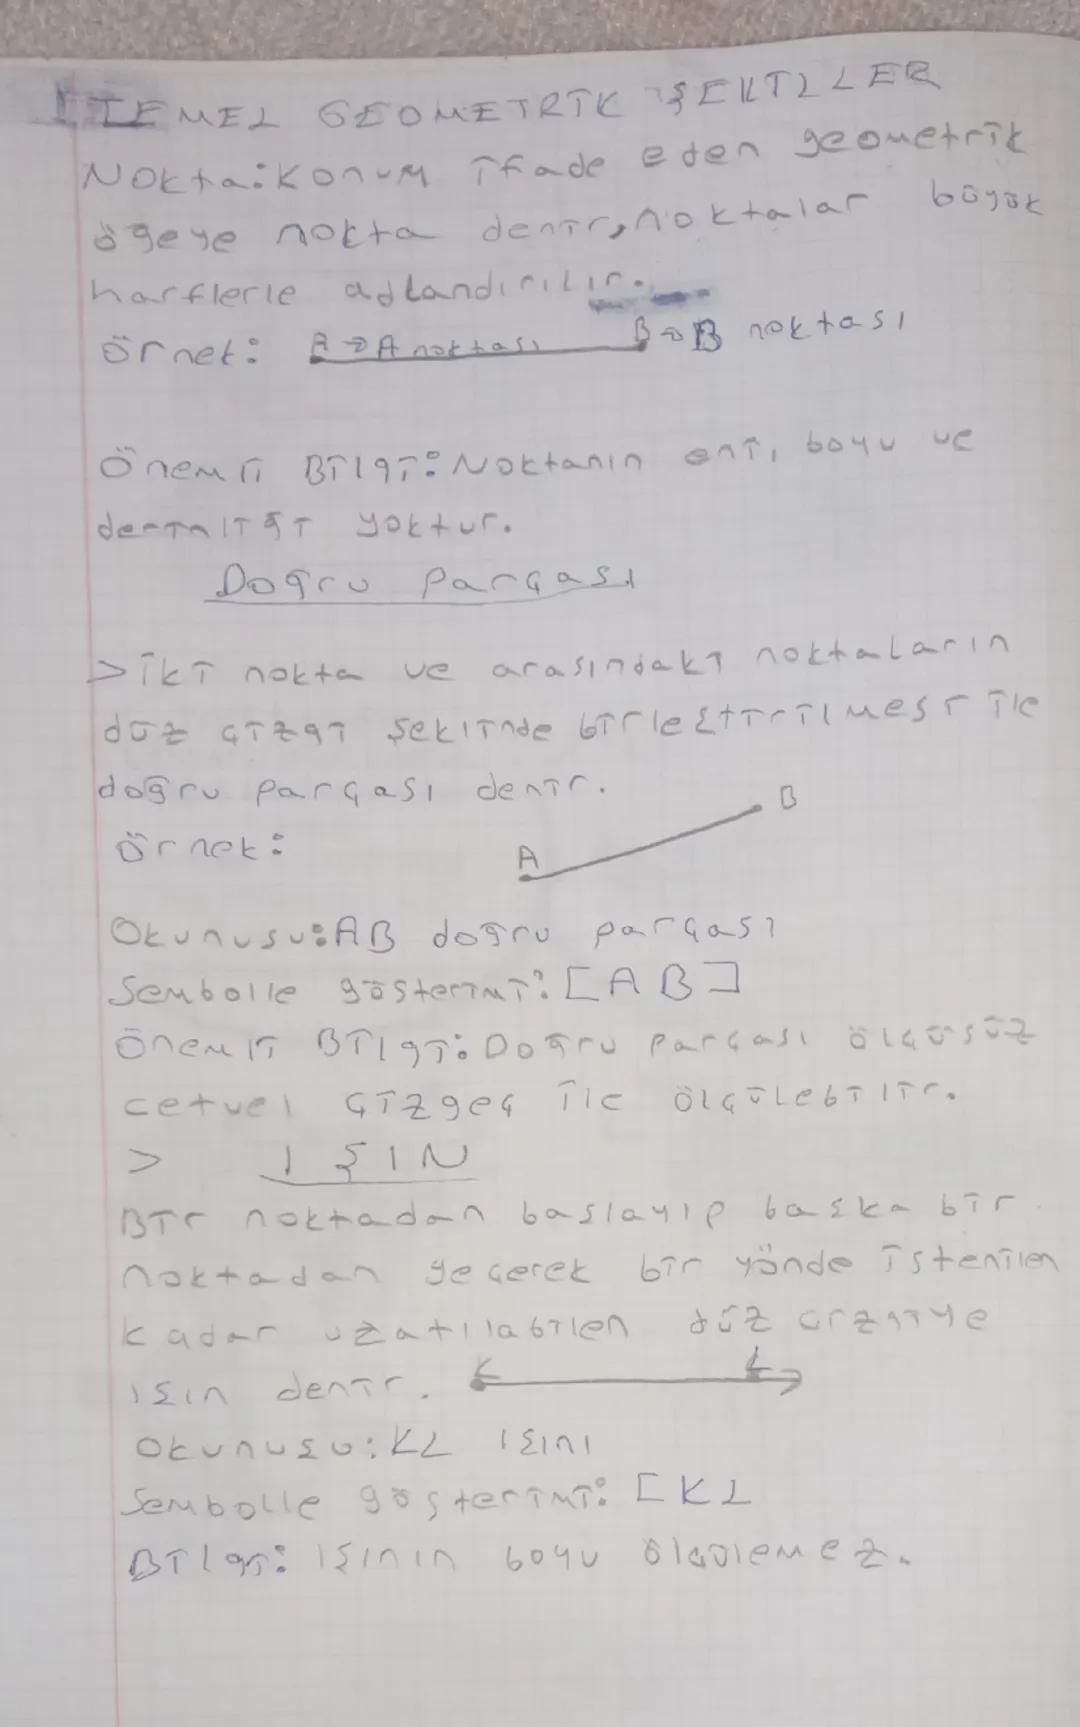 TEMEL GEOMETRİK ŞEKİLLER
Nokta: Konum ifade eden geometrik
öğeye nokta denir, noktalar büyük
harflerle adlandırılır.
örnek: A → A noktası B → B noktası
Önemli Bilgi: Noktanın eni, boyu ve
derinliği yoktur.
Doğru parçası
> iki nokta ve arasındaki noktaların
düz çizgi şeklinde birleştirilmesi ile
doğru parçası denir.
B
örnek:
A
Okunusu: AB doğru parçası
Sembolle gösterimi: [AB]
Önemli Bilgi: Doğru parçası ölçüsüz
cetvel çizgeç ile ölçülebilir.
> IŞIN
Bir noktadan baslayıp başka bir
noktadan geçerek bir yönde istenilen
kadar uzatılabilen düz çizgiye
ışın denir. K L
Okunuşu: KL ışını
Sembolle gösterimi: [KL
Bilgi: Işının boyu ölçülemez.